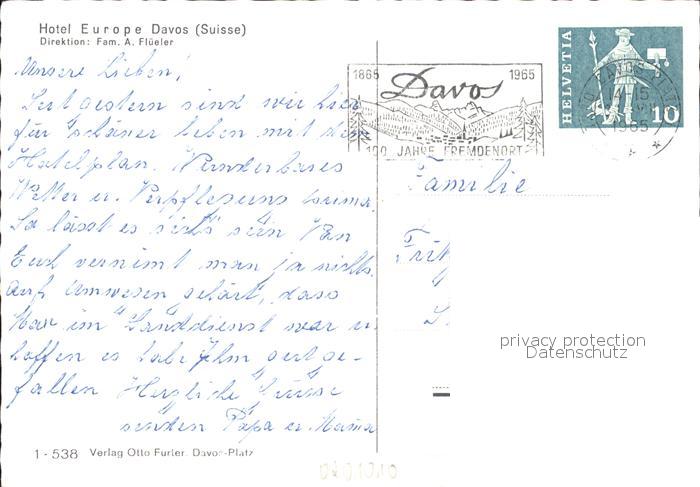 Hotel Europe Davos (Suisse)
Direktion: Fam. A. Flüeler
Unsere Lieben!
Seit gestern sind wir hier
für schöner leben mit dem
Hotelplan. Wunderbares
Wetter u. Verpflegung
So lässt es sich sein Von
Euch vernimt man ja nichts.
Auf Umwegen gehört, dass
Max im Landdienst war u.
hoffen es habe ihm gut ge-
fallen Herzliche Grüsse
senden Papa u. Mama
1865 Davos 1965
100 JAHRE FREMDENORT
HELVETIA
10
14-15
1965
Familie
privacy protection
Datenschutz
1-538 Verlag Otto Furter, Davos-Platz